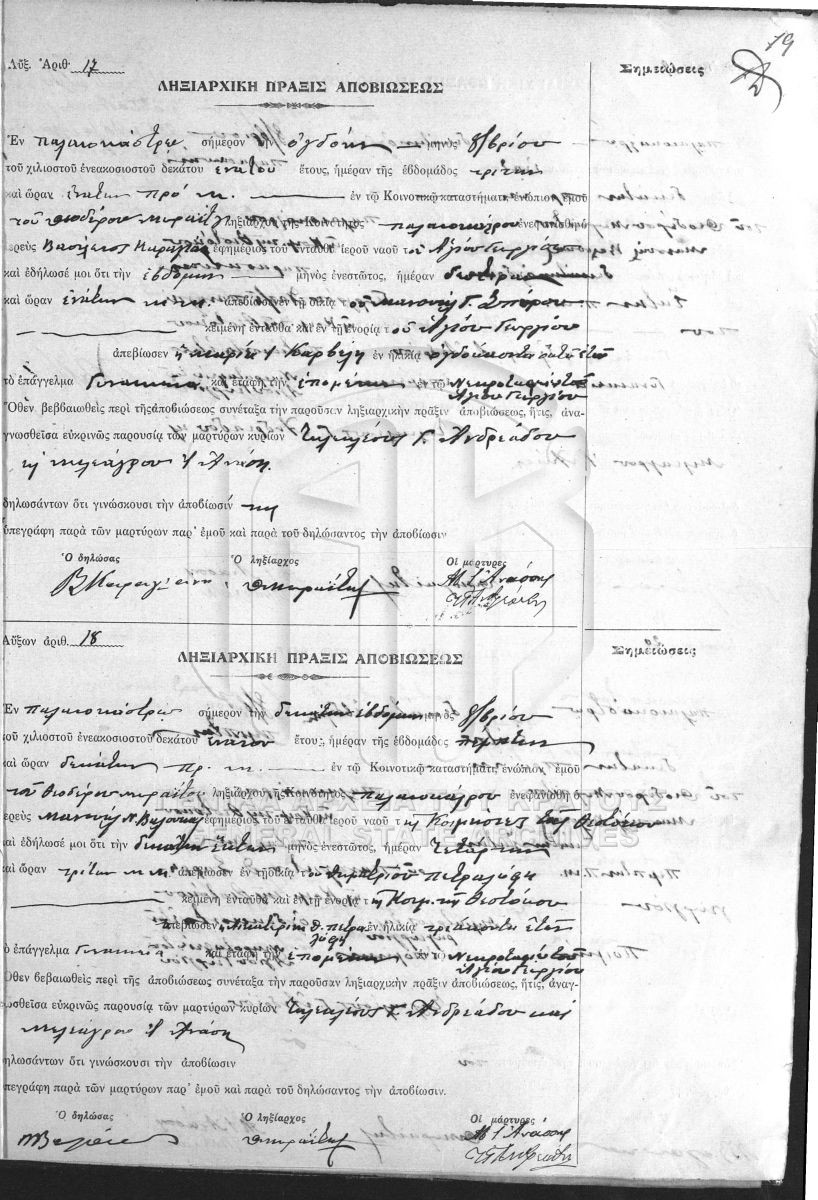 19
Αὔξ. Ἀριθ. 17
Σημειώσεις
ΛΗΞΙΑΡΧΙΚΗ ΠΡΑΞΙΣ ΑΠΟΒΙΩΣΕΩΣ
Ἐν Παλαιοκάστρῳ σήμερον τὴν ὀγδόην μηνὸς 8/βρίου
τοῦ χιλιοστοῦ ἐνεακοσιοστοῦ δεκάτου ἐνάτου ἔτους, ἡμέραν τῆς ἑβδομάδος τρίτην
καὶ ὥραν ἐνάτην πρό μ. ἐν τῷ Κοινοτικῷ καταστήματι ἐνώπιον ἐμοῦ
τοῦ Θεοδώρου ληξιάρχου τῆς Κοινότητος Παλαιοκάστρου ἐνεφανίσθη ὁ
ἱερεὺς Βασίλειος ἐφημέριος τοῦ ἐνταῦθα ἱεροῦ ναοῦ τοῦ Ἁγίου Γεωργίου
καὶ ἐδήλωσέ μοι ὅτι τὴν ἑβδόμην μηνὸς ἐνεστῶτος, ἡμέραν Δευτέραν
καὶ ὥραν ἐνάτην μ.μ. ἀπεβίωσεν ἐν τῇ οἰκίᾳ τοῦ Μανουὴλ Γ.
κειμένῃ ἐνταῦθα καὶ ἐν τῇ ἐνορίᾳ τοῦ Ἁγίου Γεωργίου
ἀπεβίωσεν ἡ Μαρία Ι Καρβέλη ἐν ἡλικίᾳ ὀγδοήκοντα ἐτῶν
τὸ ἐπάγγελμα καὶ ἐτάφη τὴν ἑπομένην ἐν τῷ Νεκροταφείῳ τοῦ
Ἁγίου Γεωργίου
Ὅθεν βεββαιωθεὶς περὶ τῆς ἀποβιώσεως συνέταξα τὴν παροῦσαν ληξιαρχικὴν πρᾶξιν ἀποβιώσεως, ἥτις, ἀνα-
γνωσθεῖσα εὐκρινῶς παρουσίᾳ τῶν μαρτύρων κυρίων Γ. Ἀνδρεάδου
Μελεάγρου Ι Ἀνάση
δηλωσάντων ὅτι γινώσκουσι τὴν ἀποβίωσίν της
ὑπεγράφη παρὰ τῶν μαρτύρων παρ' ἐμοῦ καὶ παρὰ τοῦ δηλώσαντος τὴν ἀποβίωσιν
Ὁ δηλώσας Ὁ ληξίαρχος Οἱ μάρτυρες
Μ Ι Ἀνάσης
Αὔξων ἀριθ. 18
Σημειώσεις
ΛΗΞΙΑΡΧΙΚΗ ΠΡΑΞΙΣ ΑΠΟΒΙΩΣΕΩΣ
Ἐν Παλαιοκάστρῳ σήμερον τὴν δεκάτην ἑβδόμην μηνὸς 8/βρίου
τοῦ χιλιοστοῦ ἐνεακοσιοστοῦ δεκάτου ἐνάτου ἔτους, ἡμέραν τῆς ἑβδομάδος πέμπτην
καὶ ὥραν δεκάτην πρ. μ. ἐν τῷ Κοινοτικῷ καταστήματι, ἐνώπιον ἐμοῦ
τοῦ Θεοδώρου ληξιάρχου τῆς Κοινότητος Παλαιοκάστρου ἐνεφανίσθη ὁ
ἱερεὺς Μανουὴλ ἐφημέριος τοῦ ἐνταῦθα ἱεροῦ ναοῦ τῆς Κοιμήσεως τῆς Θεοτόκου
καὶ ἐδήλωσέ μοι ὅτι τὴν δεκάτην ἕκτην μηνὸς ἐνεστῶτος, ἡμέραν Τετάρτην
καὶ ὥραν τρίτην μ.μ. ἀπεβίωσεν ἐν τῇ οἰκίᾳ τοῦ Δημητρίου
κειμένῃ ἐνταῦθα καὶ ἐν τῇ ἐνορίᾳ τῆς Κοιμ. τῆς Θεοτόκου
ἀπεβίωσεν ἡ Αἰκατερίνη ἐν ἡλικίᾳ τριάκοντα ἐτῶν
τὸ ἐπάγγελμα καὶ ἐτάφη τὴν ἑπομένην ἐν τῷ Νεκροταφείῳ τοῦ
Ἁγίου Γεωργίου
Ὅθεν βεβαιωθεὶς περὶ τῆς ἀποβιώσεως συνέταξα τὴν παροῦσαν ληξιαρχικὴν πρᾶξιν ἀποβιώσεως, ἥτις, ἀναγ-
νωσθεῖσα εὐκρινῶς παρουσίᾳ τῶν μαρτύρων κυρίων Γ. Ἀνδρεάδου καὶ
Μελεάγρου Ι Ἀνάση
δηλωσάντων ὅτι γινώσκουσι τὴν ἀποβίωσιν
ὑπεγράφη παρὰ τῶν μαρτύρων παρ' ἐμοῦ καὶ παρὰ τοῦ δηλώσαντος τὴν ἀποβίωσιν.
Ὁ δηλώσας Ὁ ληξίαρχος Οἱ μάρτυρες
Μ Ι Ἀνάσης
GENERAL STATE ARCHIVES